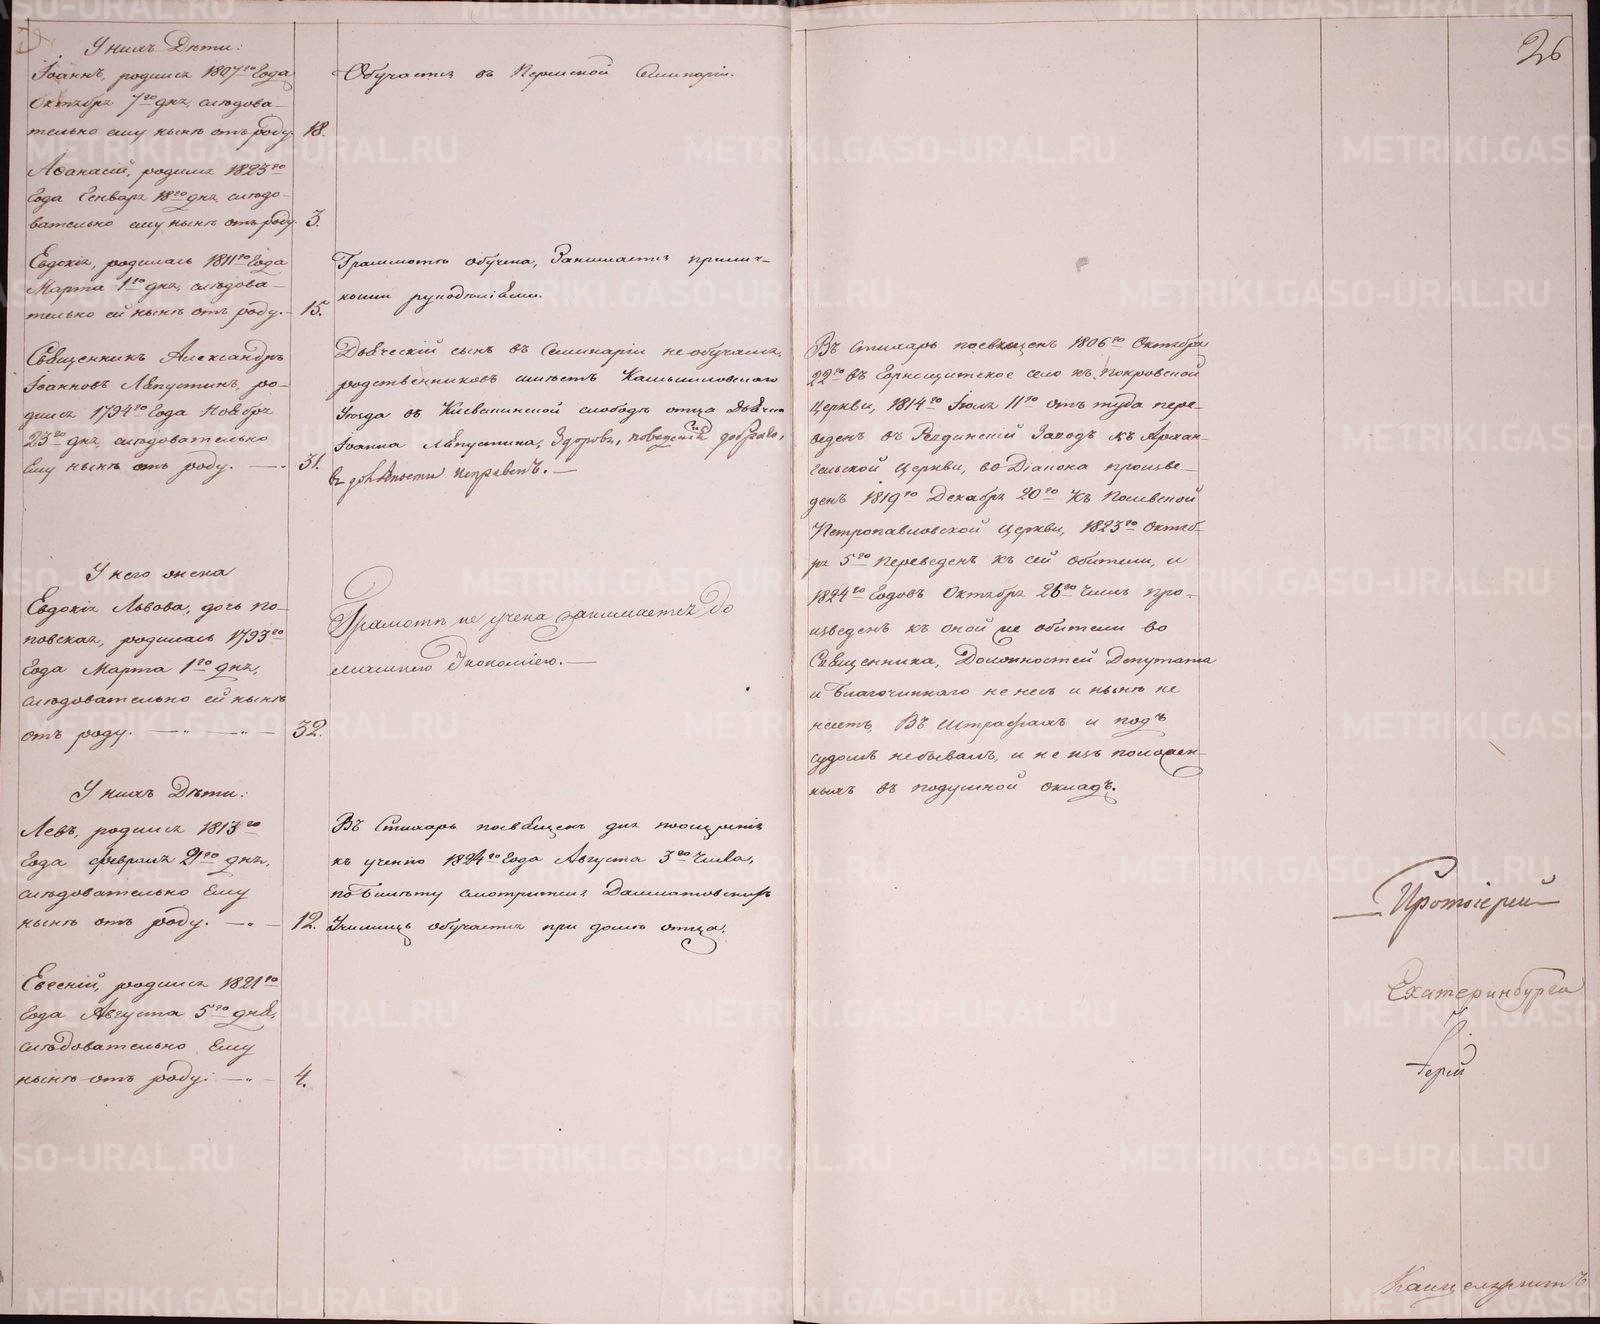 26
У нихъ Дѣти:
Іоаннъ, родился 1807го Года
Октября 7го дня, слѣдова-
тельно ему нынѣ отъ роду
18.
Обучается въ Пермской Семинаріи.
Аѳанасій, родился 1823го
Года Генваря 18го дня, слѣдо-
вательно ему нынѣ отъ роду
3.
Евдокія, родилась 1811го Года
Марта 1го дня, слѣдова-
тельно ей нынѣ отъ роду. -
15.
Грамотѣ обучена, Занимается прилич-
ными рукодѣліями.
Священникъ Александръ
Іоанновъ Авпустинъ, ро-
дился 1794го Года Ноября
23го дня слѣдовательно
Ему нынѣ отъ роду. -
31.
Дьяческій сынъ въ Семинаріи не обучался,
родственниковъ имѣетъ Камышловскаго
Уѣзда въ Киевлинской слободѣ отца Дьячка
Іоанна Авпустина, Здоровъ, поведенія добраго,
въ должности исправенъ. -
У него жена
Евдокія Львова, дочь по-
повская, родилась 1793го
Года Марта 1го дня,
слѣдовательно ей нынѣ
отъ роду. -
32.
Грамотѣ не учена занимается до
машнею Экономіею. -
У нихъ Дѣти:
Левъ, родился 1813го
Года февраля 21го дня,
слѣдовательно Ему
нынѣ отъ роду. -
12.
Въ Стихарь посвященъ для поощренія
къ ученію 1824го Года Августа 3го Числа,
по Билету смотрителя Далматовскихъ
Училищъ обучается при домѣ отца.
Евгеній, родился 1821го
Года Августа 5го дня,
слѣдовательно Ему
нынѣ отъ роду. -
4.
Въ Стихарь посвященъ 1806го Октября
22го въ Горнощитское село къ Покровской
Церкви, 1814го Іюля 11го отъ туда пере-
веденъ въ Ревдинскій Заводъ къ Архан-
гельской Церкви, во Діакона произве-
денъ 1819го Декабря 20го къ Полевской
Петропавловской Церкви, 1823го Октяб-
ря 5го переведенъ къ сей обители, и
1824го Годовъ Октября 26го Числъ про-
изведенъ къ оной же обители во
Священника, Должностей Депутата
и Благочиннаго не несъ и нынѣ не
несетъ, Въ штрафахъ и подъ
судомъ небывалъ, и не изъ положен-
ныхъ въ подушной окладъ.
Протоіерей
Екатеринбурга
Канцеляристъ
METRIKI.GASO-URAL.RU